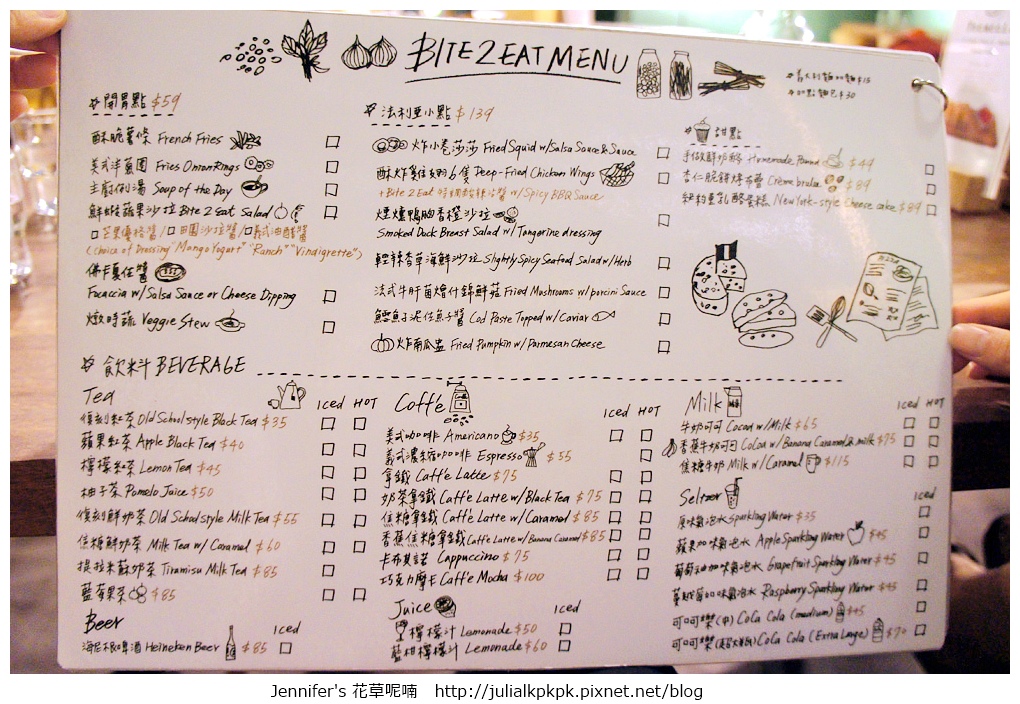 BITE2EAT MENU
開胃點 $59
酥脆薯條 French Fries
美式洋蔥圈 Fries Onion Rings
主廚例湯 Soup of the Day
鮮蝦蘋果沙拉 Bite 2 eat Salad
芒果優格醬/田園沙拉醬/義式油醋醬
(choice of Dressing "Mango Yogurt" "Ranch" "Vinaigrette")
佛卡夏佐醬
Focaccia w/Salsa Sauce or Cheese Dipping
燉時蔬 Veggie Stew
法利亞小點 $139
炸小卷莎莎 Fried Squid w/Salsa Sauce & Sauce
酥炸雞翅 6隻 Deep-Fried Chicken Wings
+Bite 2 Eat 特調酸辣沾醬 w/Spicy BBQ Sauce
煙燻鴨胸香橙沙拉
Smoked Duck Breast Salad w/Tangerine dressing
輕辣香草海鮮沙拉 Slightly Spicy Seafood Salad w/Herb
法式牛肝菌燴什錦鮮菇 Fried Mushrooms w/porcini Sauce
鱈魚子泥佐魚子醬 Cod Paste Topped w/Caviar
炸南瓜盅 Fried Pumpkin w/Parmesan Cheese
義大利麵加麵 $15
加點麵包 $30
甜點
手做鮮奶酪 Homemade Pound $49
杏仁脆餅烤布蕾 Crème brulee $89
紐約重乳酪蛋糕 New York-style Cheese cake $89
飲料 BEVERAGE
Tea
Iced HOT
復刻紅茶 Old School style Black Tea $35
蘋果紅茶 Apple Black Tea $40
檸檬紅茶 Lemon Tea $45
柚子茶 Pomelo Juice $50
復刻鮮奶茶 Old School style Milk Tea $55
焦糖鮮奶茶 Milk Tea w/Caramel $60
提拉米蘇奶茶 Tiramisu Milk Tea $85
藍莓果茶 $85
Beer
Iced
海尼根啤酒 Heineken Beer $85
Coffe
Iced HOT
美式咖啡 Americano $35
義式濃縮咖啡 Espresso $35
拿鐵 Caff'e Latte $75
奶茶拿鐵 Caff'e Latte w/Black Tea $75
焦糖拿鐵 Caff'e Latte w/Caramel $85
香蕉焦糖拿鐵 Caff'e Latte w/Banana Caramel $85
卡布其諾 Cappuccino $75
巧克力摩卡 Caff'e Mocha $100
Juice
Iced
檸檬汁 Lemonade $50
藍柑檸檬汁 Lemonade $60
Milk
Iced HOT
牛奶可可 Cocoa w/Milk $65
香蕉牛奶可可 Cocoa w/Banana Caramel & milk $75
焦糖牛奶 Milk w/Caramel $115
Seltzer
Iced
原味氣泡水 Sparkling Water $35
蘋果加味氣泡水 Apple Sparkling Water $45
葡萄柚加味氣泡水 Grapefruit Sparkling Water $45
蔓越莓加味氣泡水 Raspberry Sparkling Water $45
可口可樂(中) Coca Cola (medium) $45
可口可樂(超大瓶) Coca Cola (Extra Large) $70
Jennifer's 花草呢喃 http://julialkpkpk.pixnet.net/blog